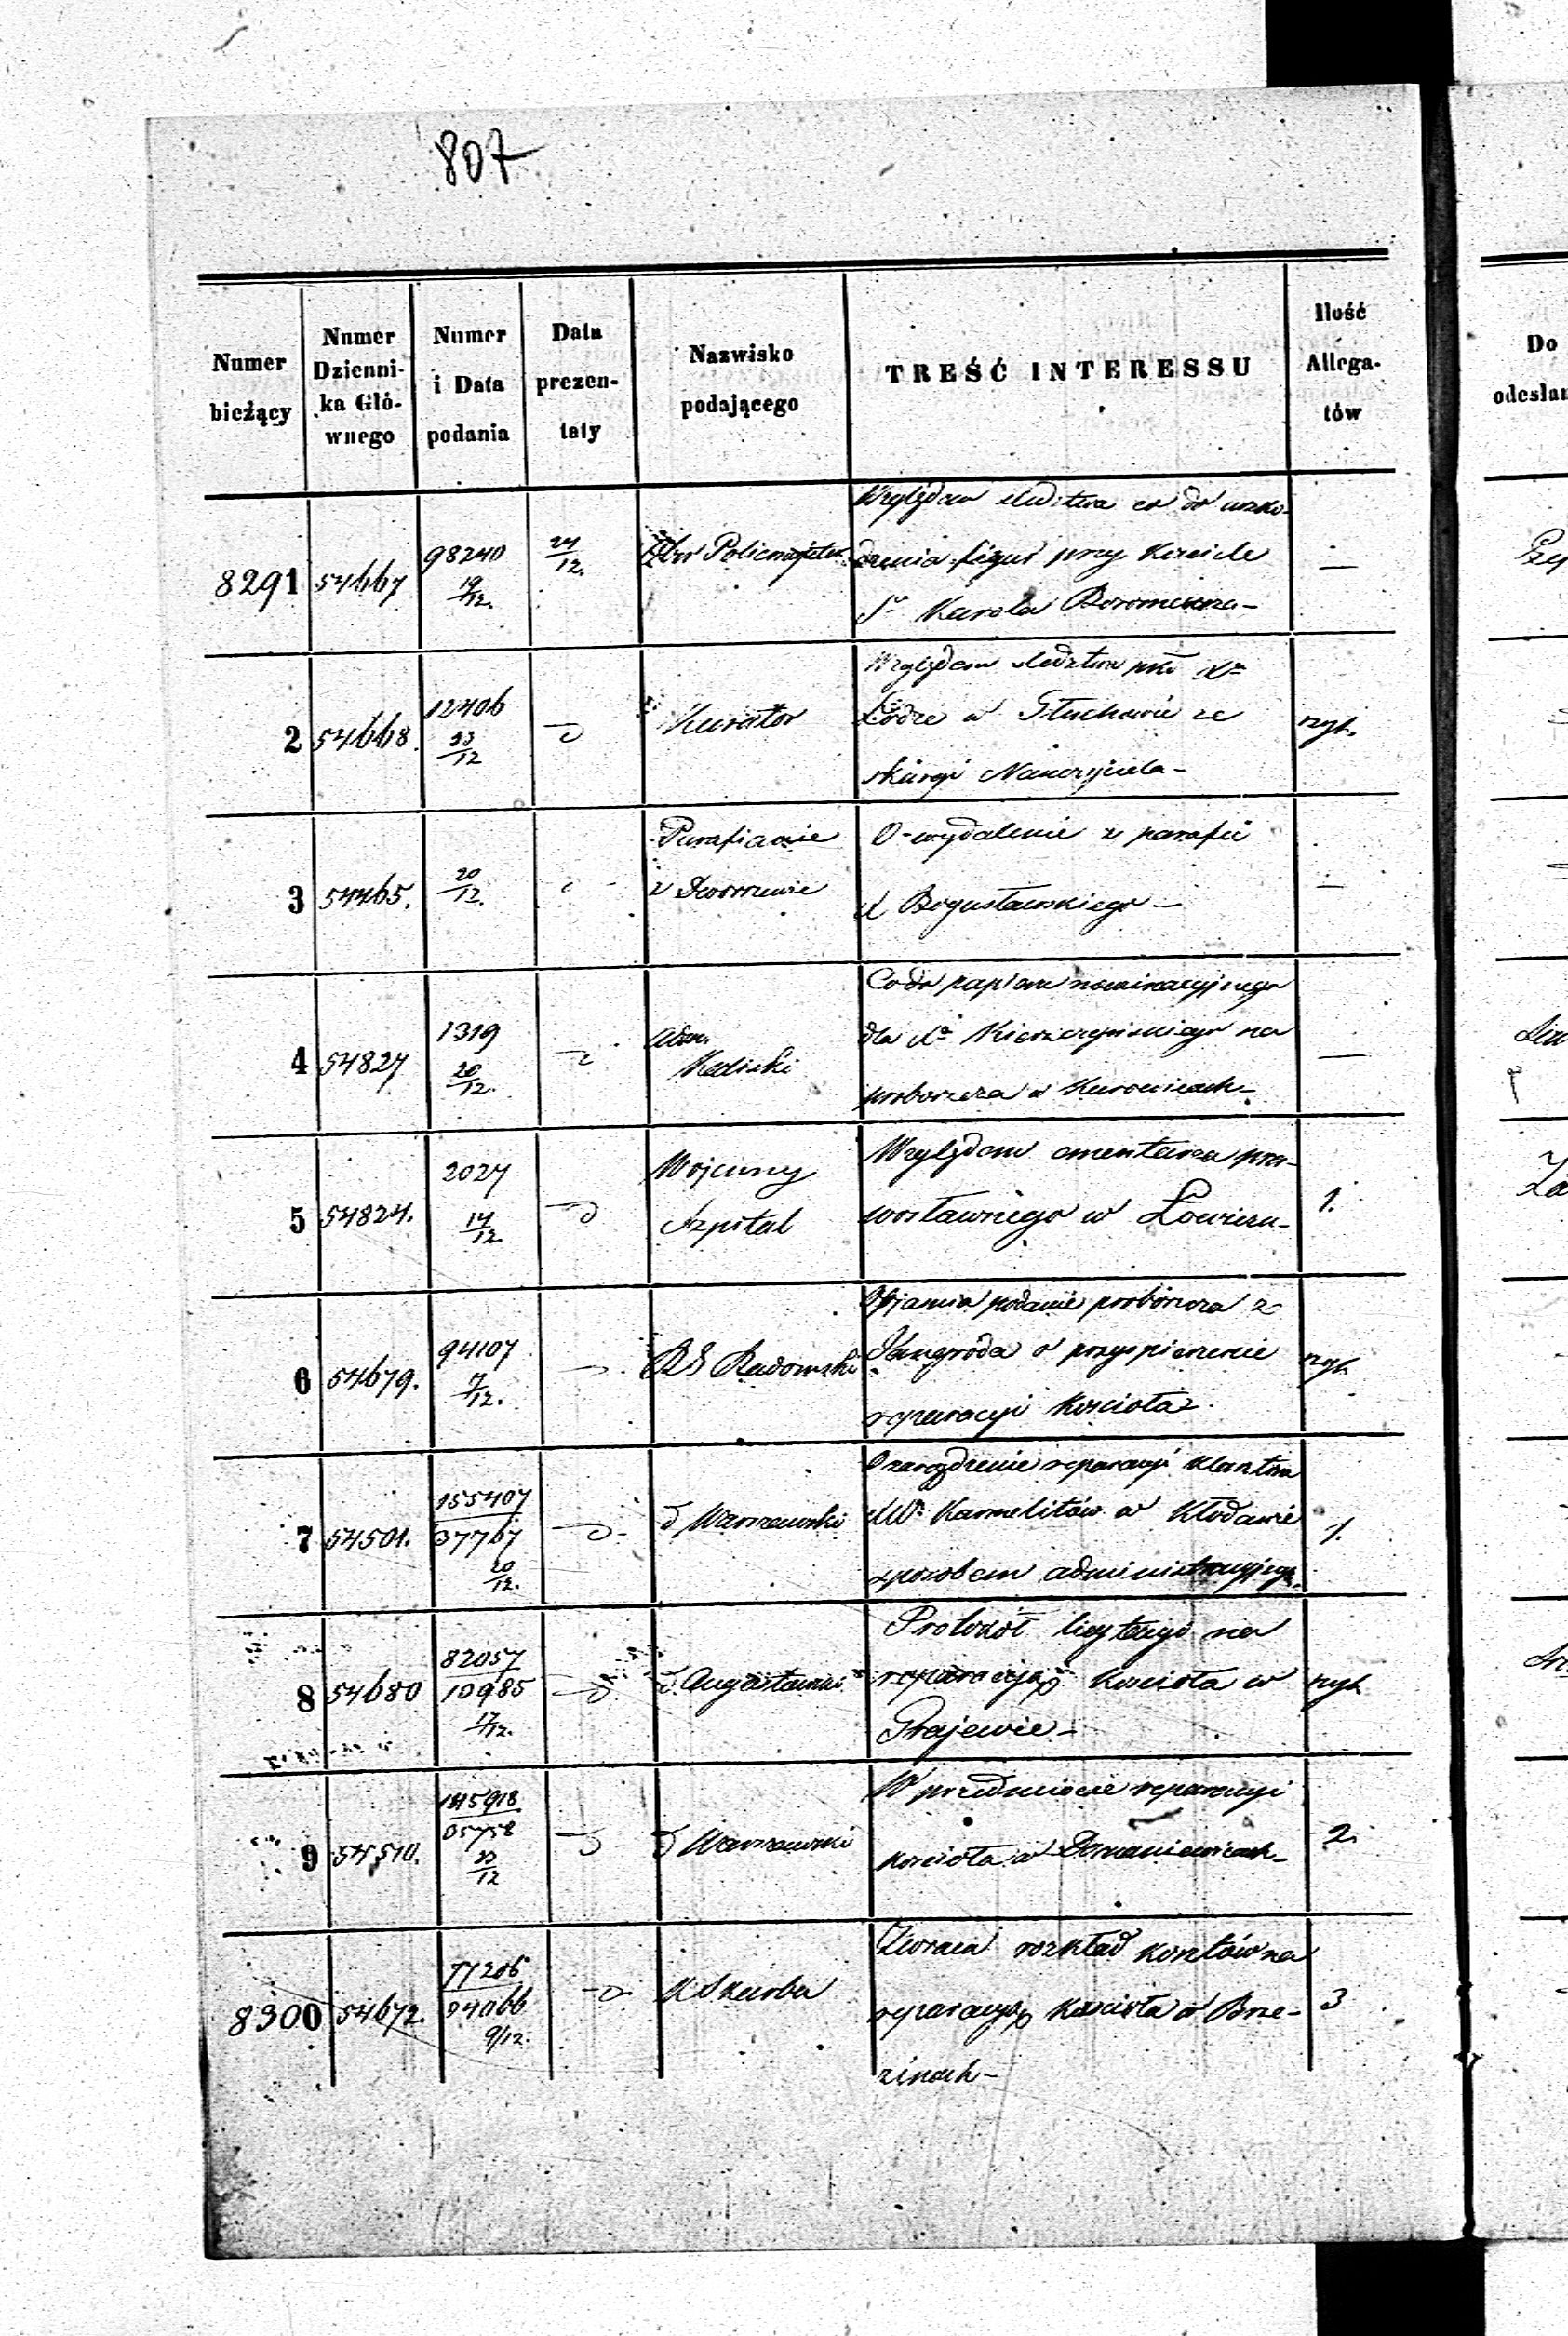 807
Numer bieżący
Numer Dziennika Głównego
Numer i Data podania
Data prezentaty
Nazwisko podającego
TREŚĆ INTERESSU
Ilość Allegatów
Do
odesłan
8291 54667 98240 19/12. 24/12. Policmajster
Względem śledztwa co do uszko-
dzenia figur przy Kościele —
Sº Karola Boromeusza –
2 54668. 12406 Kurator
Względem śledztwa
w Głuchowie ze zyt.
skargi Nauczyciela –
3 54465. 20/12. Parafianie
O wydalenie z parafii
X Bogusławskiego – —
4 54827 1319 20/12. Adm. Kaliski
Co do papieru nominacyjnego
dla Xª na —
proboszcza w Kurowicach –
5 54824. 2027 14/12. Wojenny Szpital
Względem cmentarza pra-
wosławnego w Łowiczu – 1.
6 54679. 94107 7/12. RG Radomski
podanie proboszcza z
o przyspieszenie
reparacyi Kościoła
7 54501. 155407 37767 20/12. d Warszawski
O zarządzenie reparacyi klasztoru
Karmelitów w Kłodawie 1.
sposobem administracyjnym.
8 54680 82057 10985 17/12. d Augustowski
Protokół licytacyi na
reparacyją Kościoła w zyt
Grajewie –
9 54510. d Warszawski
W przedmiocie reparacyi
kościoła w Domaniewicach – 2.
8300 54672. 77206 34066 9/12. K Skarbu
Zwraca rozkład kosztów na
reparacyą kościoła w Brze- 3
zinach –